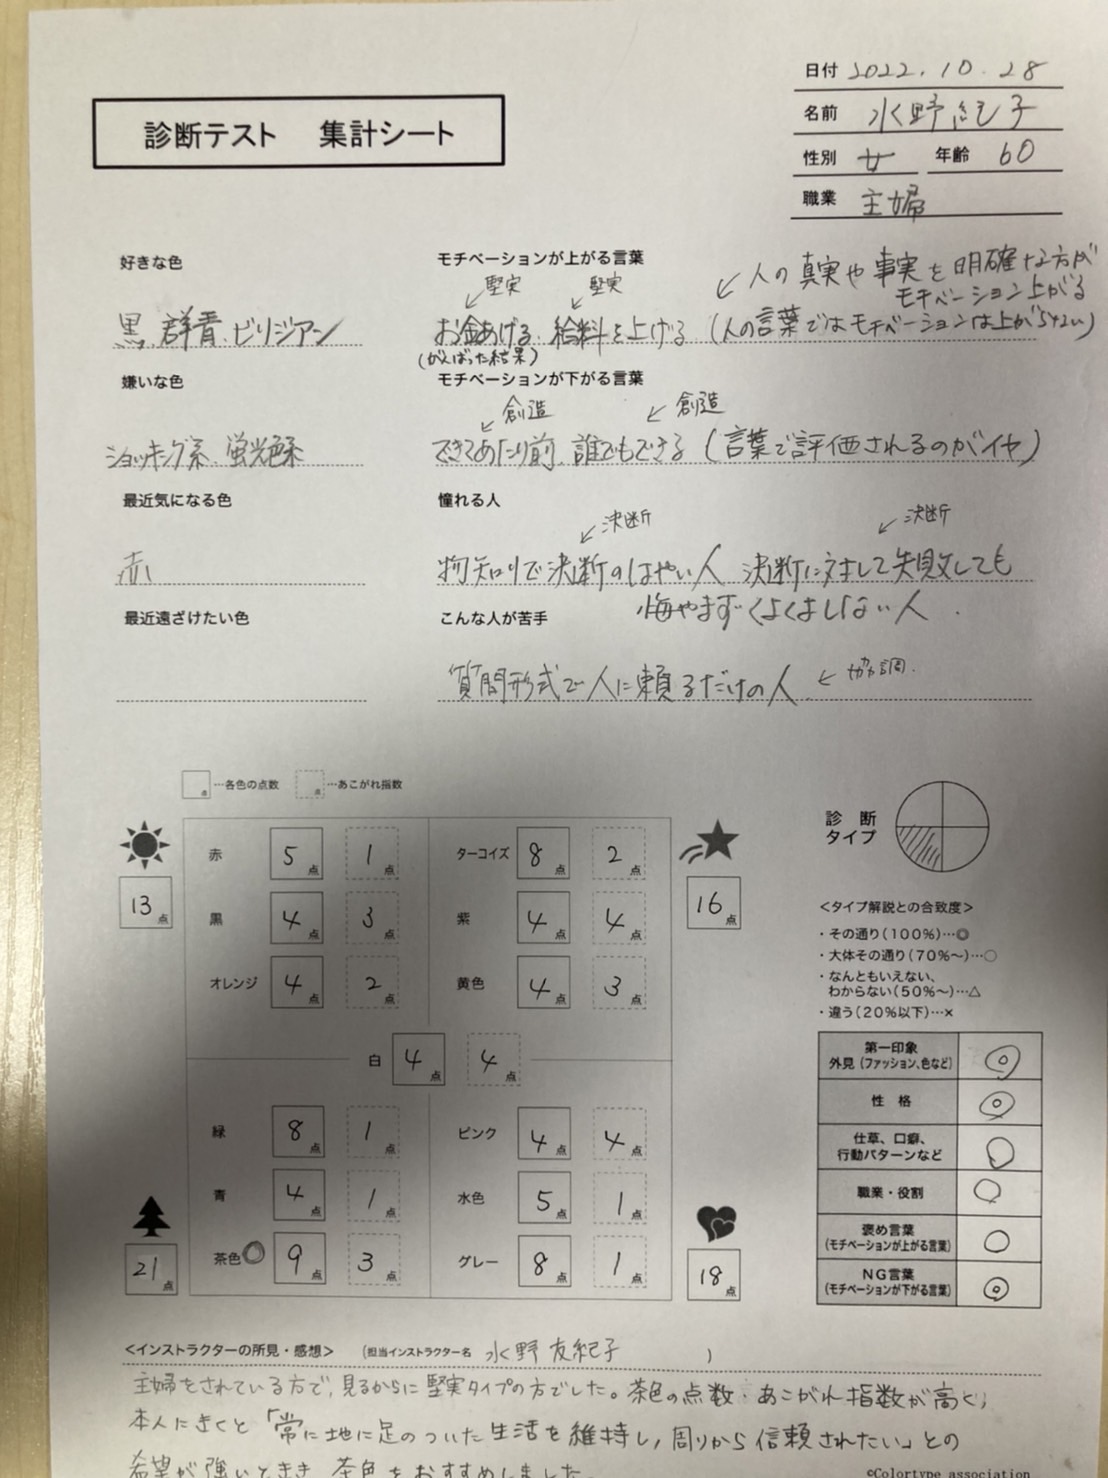 日付 2022.10.28
診断テスト 集計シート
名前 水野紀子
性別 女 年齢 60
職業 主婦
好きな色
モチベーションが上がる言葉
堅実 堅実
人の真実や事実を明確な方が
モチベーション上がる
黒、群青、ビリジアン
お金あげる、給料を上げる (人の言葉ではモチベーションは上がらない)
(がんばった結果)
嫌いな色
モチベーションが下がる言葉
創造 創造
ショッキング系、蛍光色系
できてあたり前、誰でもできる (言葉で評価されるのがイヤ)
最近気になる色
憧れる人
決断 決断
赤
物知りで決断のはやい人 決断に対して失敗しても
悔やまずくよくよしない人
最近遠ざけたい色
こんな人が苦手
質問形式で人に頼るだけの人 協調
…各色の点数 …あこがれ指数
点 点
診断タイプ
13点
赤 5点 1点
黒 4点 3点
オレンジ 4点 2点
ターコイズ 8点 2点
紫 4点 4点
黄色 4点 3点
16点
白 4点 4点
緑 8点 1点
青 4点 1点
茶色 9点 3点
21点
ピンク 4点 4点
水色 5点 1点
グレー 8点 1点
18点
<タイプ解説との合致度>
・その通り(100%)…◎
・大体その通り(70%〜)…○
・なんともいえない、
わからない(50%〜)…△
・違う(20%以下)…×
第一印象
外見(ファッション、色など) ◎
性格 ◎
仕草、口癖、
行動パターンなど ○
職業・役割 ○
褒め言葉
(モチベーションが上がる言葉) ○
NG言葉
(モチベーションが下がる言葉) ◎
<インストラクターの所見・感想> (担当インストラクター名 水野友紀子 )
主婦をされている方で、見るからに堅実タイプの方でした。茶色の点数・あこがれ指数が高く、
本人にきくと「常に地に足のついた生活を維持し、周りから信頼されたい」との
希望が強いときき、茶色をおすすめしました。
©Colortype association